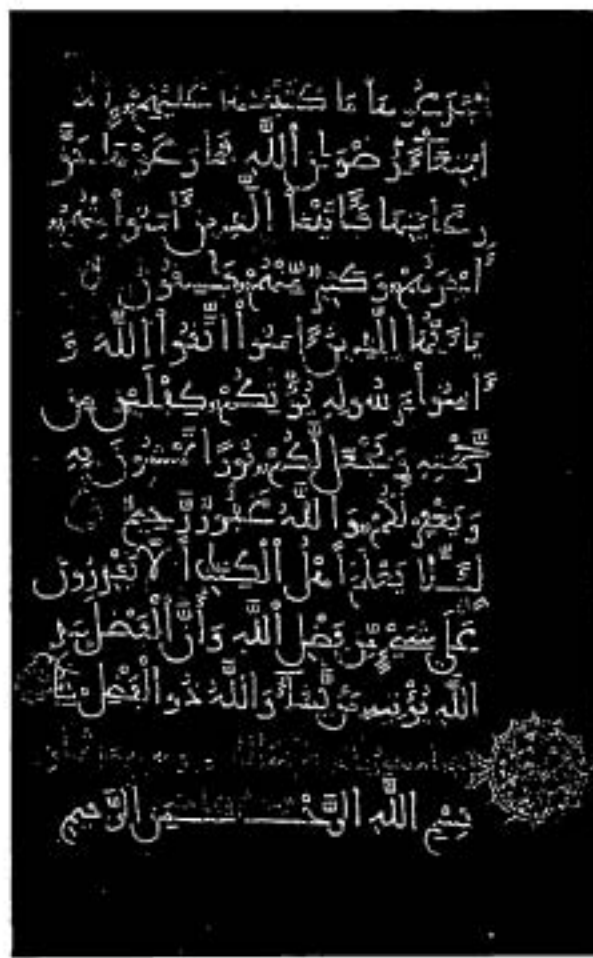 ما كتبنها عليهم إلا
ابتغاء رضون الله فما رعوها حق
رعايتها فاتينا الذين ءامنوا منهم
أجرهم وكثير منهم فسقون
يأيها الذين ءامنوا اتقوا الله و
ءامنوا برسوله يؤتكم كفلين من
رحمته ويجعل لكم نورا تمشون به
ويغفر لكم والله غفور رحيم
لئلا يعلم أهل الكتب ألا يقدرون
على شيء من فضل الله وأن الفضل بيد
الله يؤتيه من يشاء والله ذو الفضل
بسم الله الرحمن الرحيم